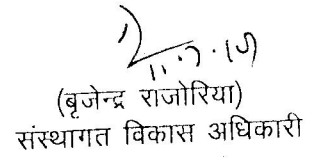 (बृजेन्द्र राजोरिया)
संस्थागत विकास अधिकारी